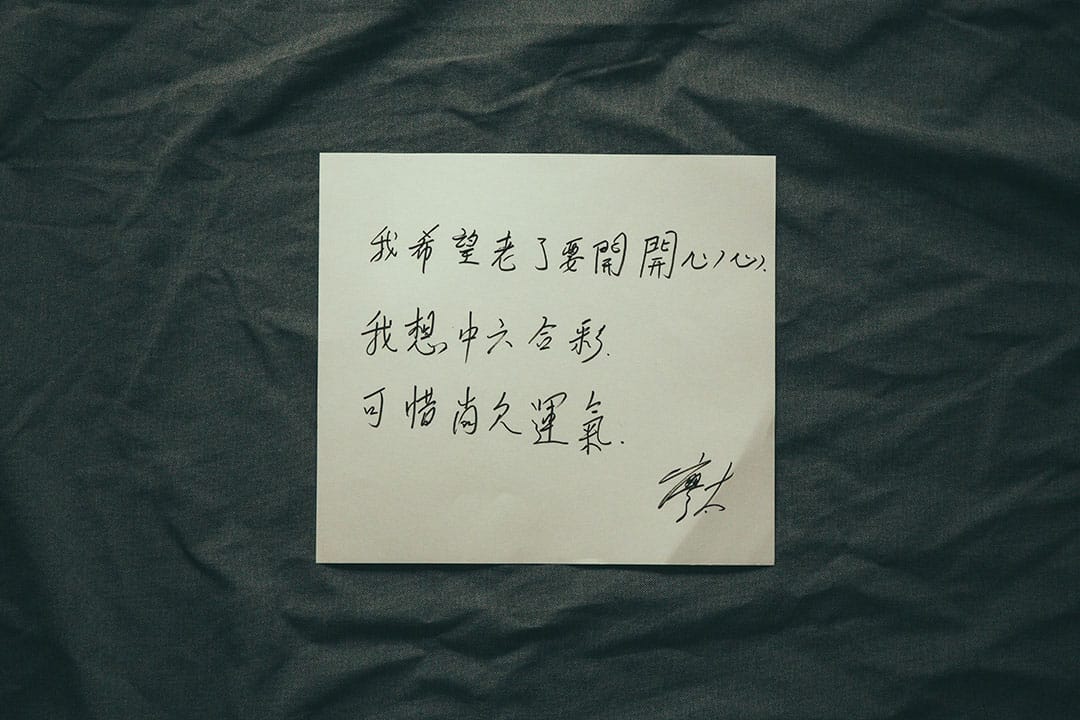 我希望老了要開開心心.
我想中六合彩.
可惜尚欠運氣.
廖太